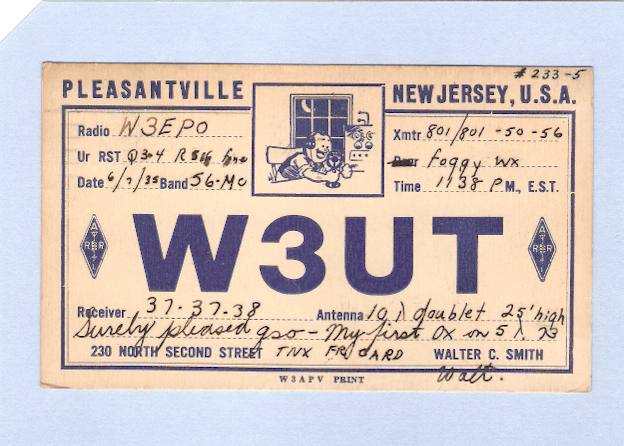 # 233-5
PLEASANTVILLE NEW JERSEY, U.S.A.
Radio W3EPO Xmtr 801/801 -50-56
Ur RST Q3-4 R foggy wx
Date 6/7/35 Band 56-MC Time 1138 P M., E.S.T.
W3UT
A
R R
L
A
R R
L
Receiver 37-37-38 Antenna 10 doublet 25' high
Surely pleased qso - My first Dx on 5 73
230 NORTH SECOND STREET TNX FR CARD WALTER C. SMITH
Walt.
W3APV PRINT